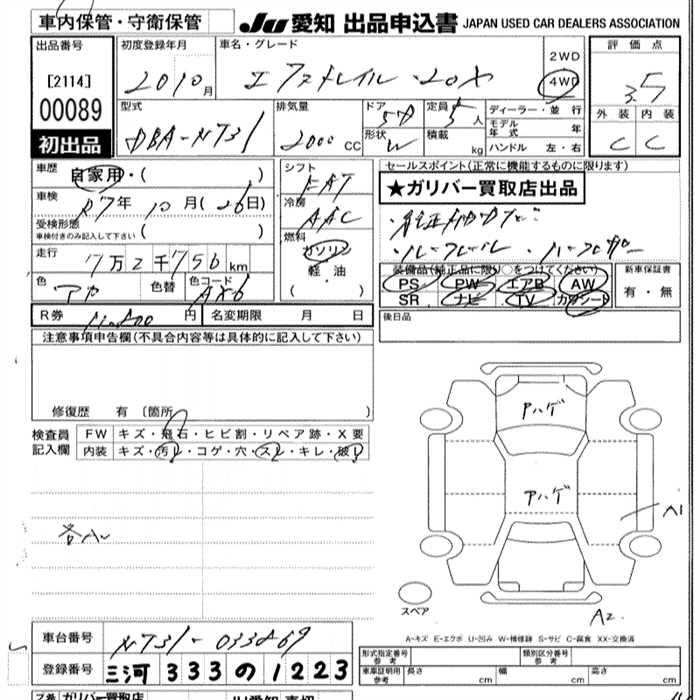 車内保管・守衛保管
JU 愛知 出品申込書 JAPAN USED CAR DEALERS ASSOCIATION
出品番号 初度登録年月 車名・グレード 評価点
[2114] 2010月 エクストレイル・20X 2WD 4WD 3.5
00089
初出品
型式 排気量 ドア 定員 ディーラー・並行 外装 内装
DBA-NT31 2000CC 5D 5人 モデル年式 年 C C
形状 W 積載 kg ハンドル 左・右
車歴 自家用・( ) シフト FAT セールスポイント(正常に機能するものに限ります)
車検 R7年10月(26日) 冷房 AAC ★ガリバー買取店出品
受検形態 ( )
車検付きのみ記入して下さい
燃料 ガソリン ・ルーフレール
走行 7万2千756km 軽油
( ・ )
装備品(純正品に限り○をつけてください) 新車保証書
色 アカ 色替 色コード AX6
PS PW エアB AW 有・無
SR ナビ TV カワシート
R券 円 名変期限 月 日 後日品
注意事項申告欄(不具合内容等は具体的に記入して下さい)
修復歴 有 〔箇所 〕
検査員 FW キズ・飛石・ヒビ割・リペア跡・X要
記入欄 内装 キズ・汚レ・コゲ・穴・スレ・キレ・破レ
アハゲ
アハゲ
A1
各A
スペア
A2
A-キズ E-エクボ U-凹み W-補修跡 S-サビ C-腐食 XX-交換済
車台番号 NT31-033869
形式指定番号 参考 類別区分番号 参考
登録番号 三河 333 の 1223
車庫証明用 参考 長さ cm 幅 cm 高さ cm
ガリバー買取店 JU愛知